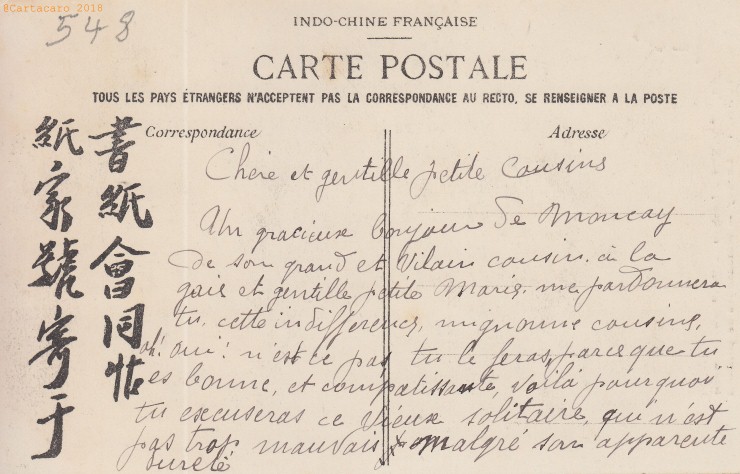 ©Cartacaro 2018
548
INDO-CHINE FRANÇAISE
CARTE POSTALE
TOUS LES PAYS ÉTRANGERS N'ACCEPTENT PAS LA CORRESPONDANCE AU RECTO, SE RENSEIGNER A LA POSTE
Correspondance
Adresse
書紙會同帖
紙家號寄于
Chère et gentille petite cousine
Un gracieux bonjour de Moncay
de son grand et vilain cousin à la
gaie et gentille petite Marie. me pardonnera
tu, cette indifférence, mignonne cousine,
oh! oui! n'est ce pas tu le feras, parce que tu
es bonne, et compatissante, voilà pourquoi
tu excuseras ce vieux solitaire, qui n'est
pas trop mauvais malgré son apparente
dureté